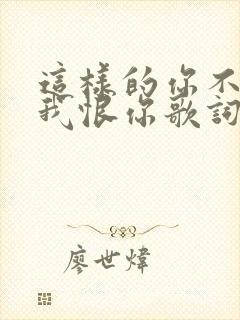 這樣的你不
我恨你歌詞
廖世煒